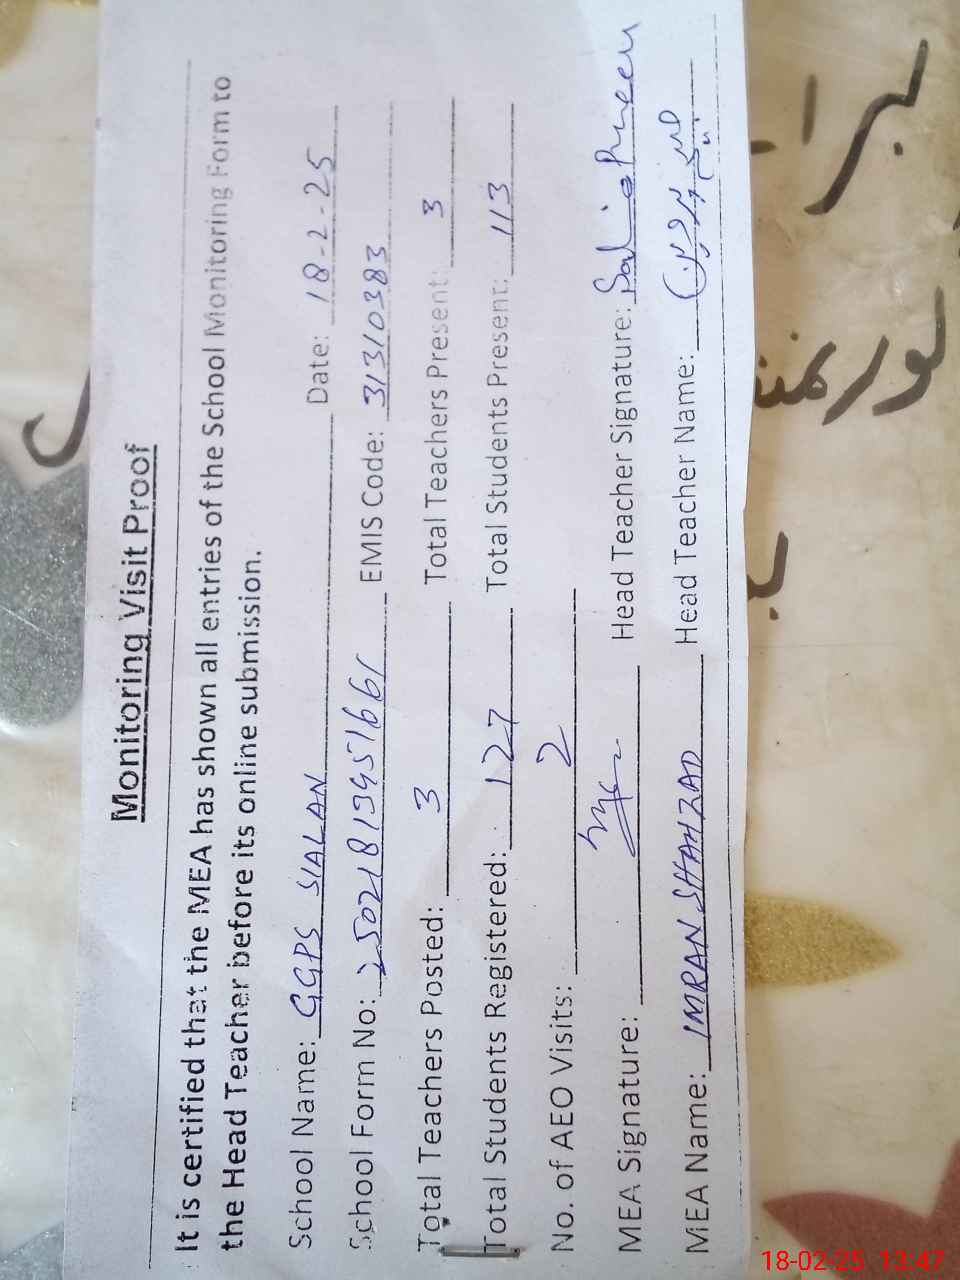 Monitoring Visit Proof
It is certified that the MEA has shown all entries of the School Monitoring Form to
the Head Teacher before its online submission.
School Name: GGPS SIALAN Date: 18-2-25
School Form No: 250218139451661 EMIS Code: 31310383
Total Teachers Posted: 3 Total Teachers Present: 3
Total Students Registered: 127 Total Students Present: 113
No. of AEO Visits: 2
MEA Signature: Head Teacher Signature:
MEA Name: IMRAN SHAHZAD Head Teacher Name:
18-02-25 13:47